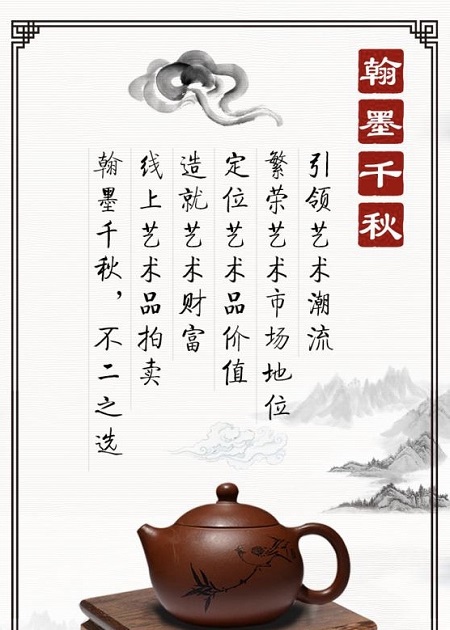 翰墨千秋
引领艺术潮流
繁荣艺术市场地位
定位艺术品价值
造就艺术财富
线上艺术品拍卖
翰墨千秋，不二之选